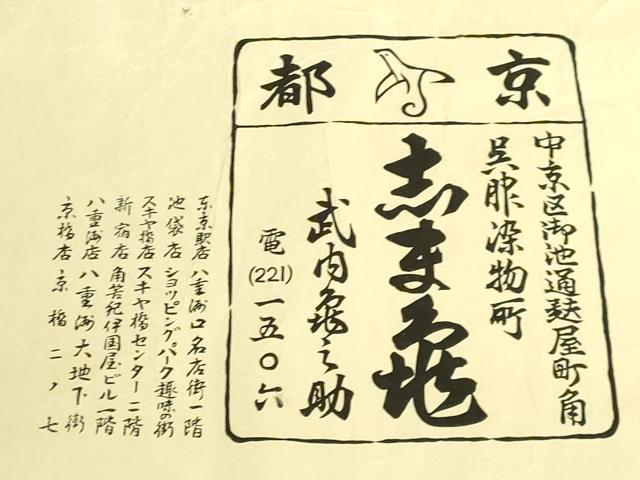 京都
中京区御池通麩屋町角
呉服染物所
志ま亀
武内亀之助
電(221)一五〇六
東京駅店 八重洲口名店街一階
池袋店 ショッピングパーク趣味の街
スキヤ橋店 スキヤ橋センター二階
新宿店 角筈紀伊国屋ビル一階
八重洲店 八重洲大地下街
京橋店 京橋二ノ七